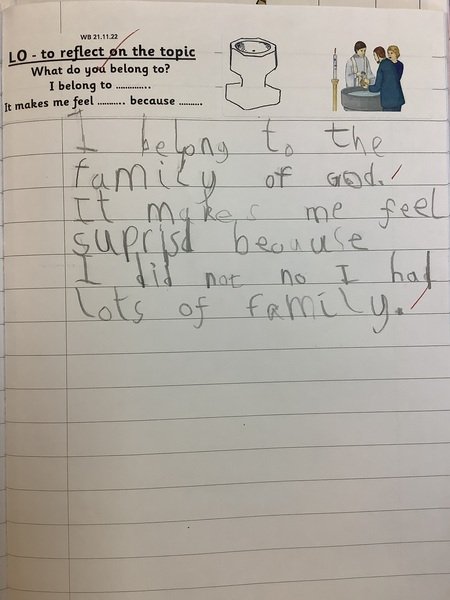 WB 21.11.22
LO - to reflect on the topic
What do you belong to?
I belong to .............
It makes me feel .......... because .........
I belong to the
family of God.
It makes me feel
suprisd because
I did not no I had
lots of family.